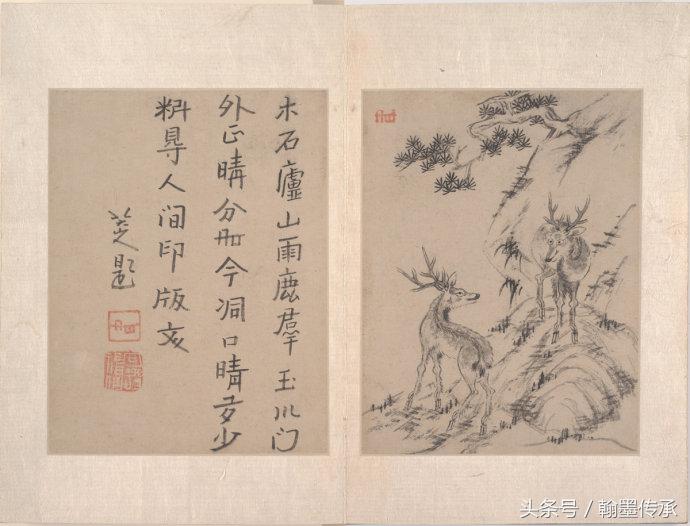 木石廬山兩鹿群玉川门
外正晴分而今洞口晴多少
料得人间印版文
題
头条号 / 翰墨传承